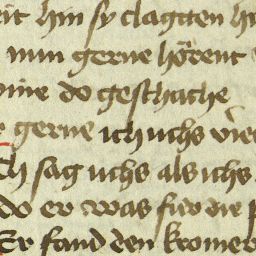 hin sy clagtten
nun gerne hörent
do geschache
gerne ich uchs
sag uchs als ichs
do er was für die
Er fand den kromer